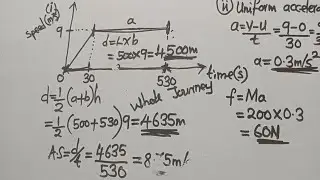 (i)
speed(m/s)
9
a
d = L×b
= 500×9 = 4,500m
0
30
530
time(s)
d = 1/2 (a+b)h
= 1/2 (500+530) 9 = 4635m
Whole Journey
AS = d/t = 4635/530 = 8.75m/
(ii) Uniform accelera
a = v-u/t = 9-0/30 = 9
a = 0.3m/s²
f = Ma
= 200×0.3
= 60N